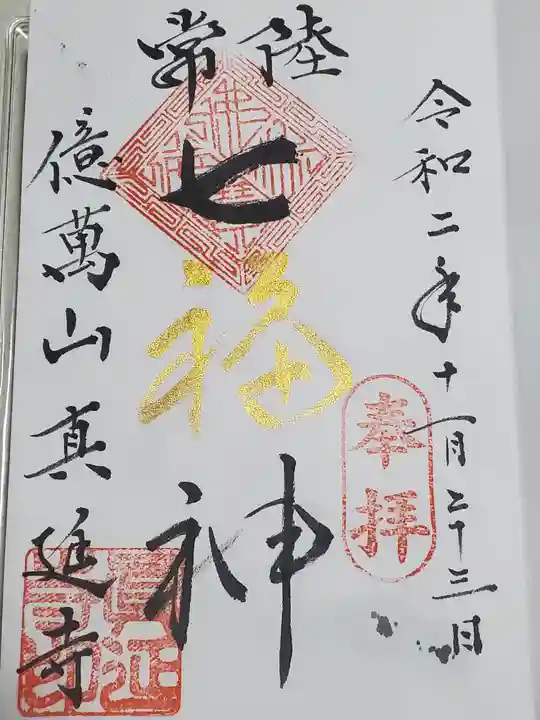 令和二年十一月二十三日
奉拝
常陸
七福神
億萬山真延寺